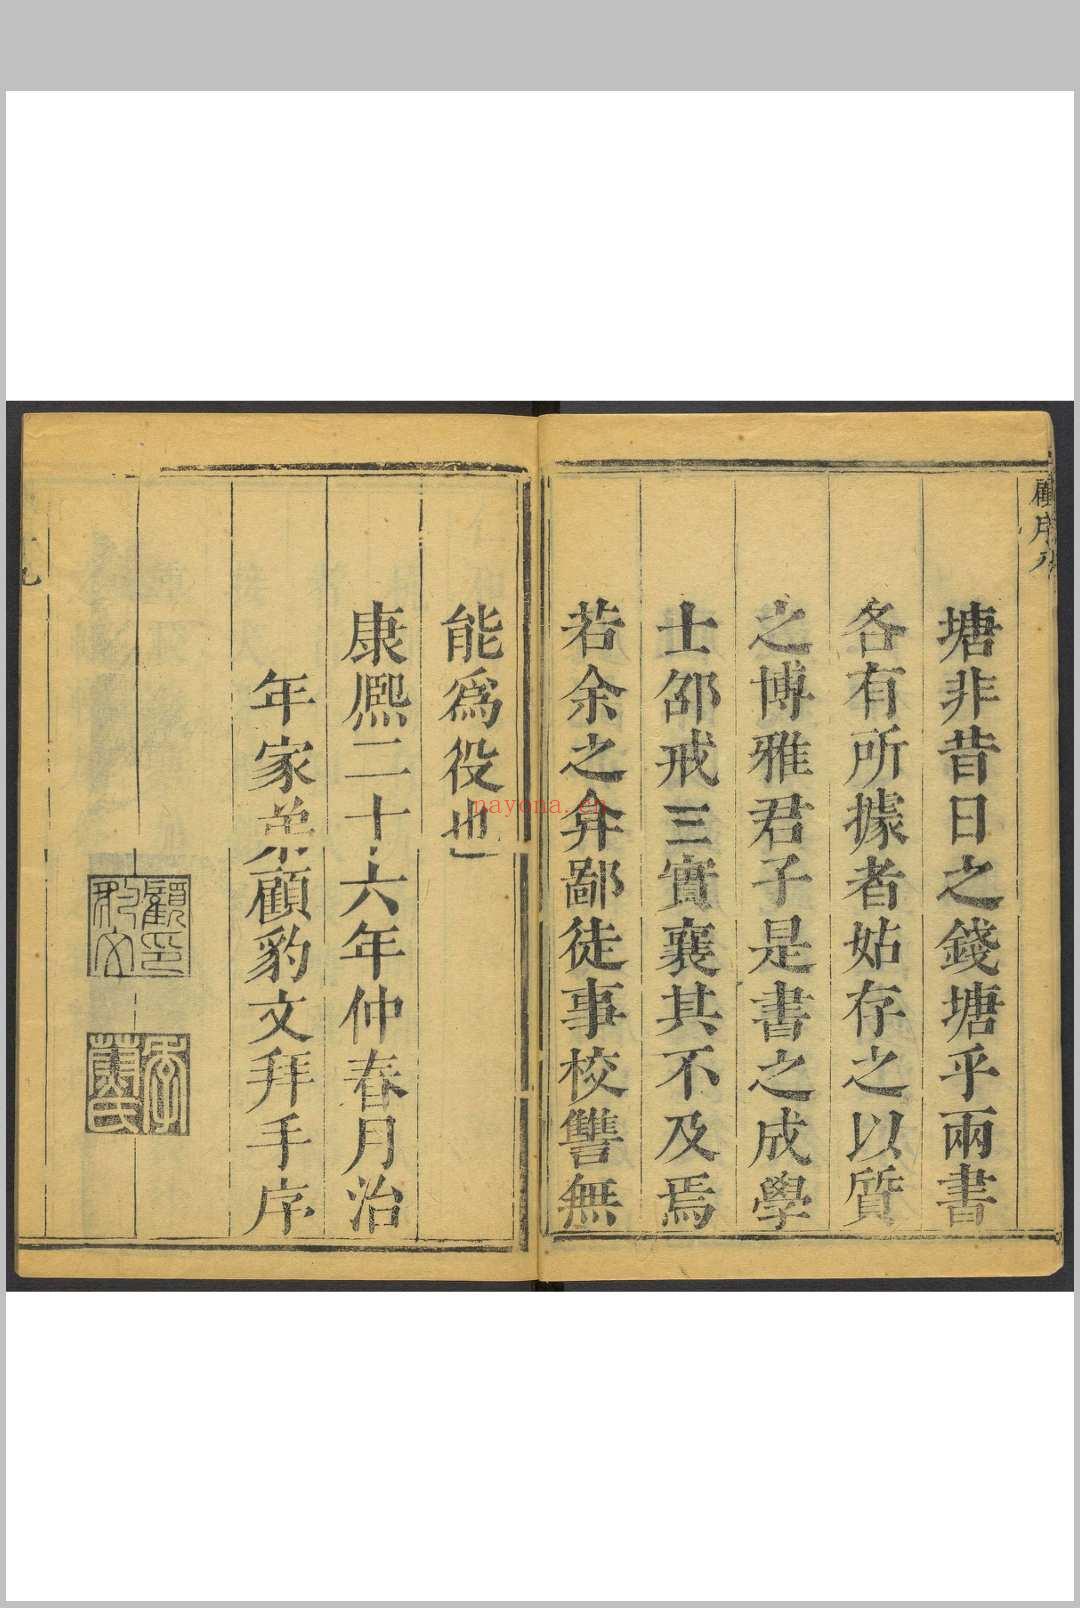 塘非昔日之錢塘乎兩書
各有所據者姑存之以質
之博雅君子是書之成學
士邵戒三實襄其不及焉
若余之弇鄙徒事校讐無
能爲役也
康熈二十六年仲春月治
年家弟顧豹文拜手序
顧印豹文
nayona.cn